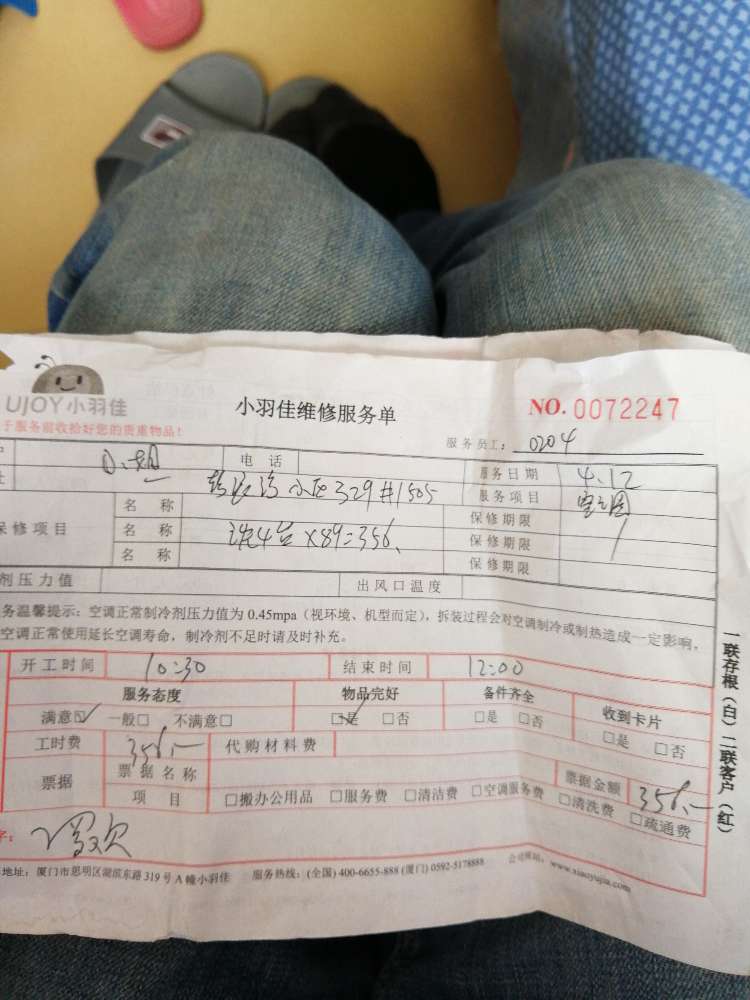 UJOY小羽佳
小羽佳维修服务单
NO. 0072247
于服务前收拾好您的贵重物品!
服务员工: 0204
电 话
服务日期 4.12
小区329#1505
服务项目
名 称
保修期限
保修项目 名 称 洗4台×89=356、 保修期限 /
名 称
保修期限
剂压力值 出风口温度
务温馨提示:空调正常制冷剂压力值为 0.45mpa(视环境、机型而定),拆装过程会对空调制冷或制热造成一定影响,
空调正常使用延长空调寿命,制冷剂不足时请及时补充。
开工时间 10:30 结束时间 12:00
服务态度 物品完好 备件齐全 收到卡片
满意☑ 一般□ 不满意□ ☑是 □否 □是 □否 □是 □否
工时费 356.- 代购材料费
票据 票据名称 票据金额 356.-
项 目 □搬办公用品 □服务费 □清洁费 □空调服务费 □清洗费 □疏通费
字:
地址:厦门市思明区湖滨东路 319 号 A 幢小羽佳 服务热线:(全国) 400-6655-888 (厦门) 0592-5178888 公司网站:www.xiaoyujia.com
一联存根(白)二联客户(红)